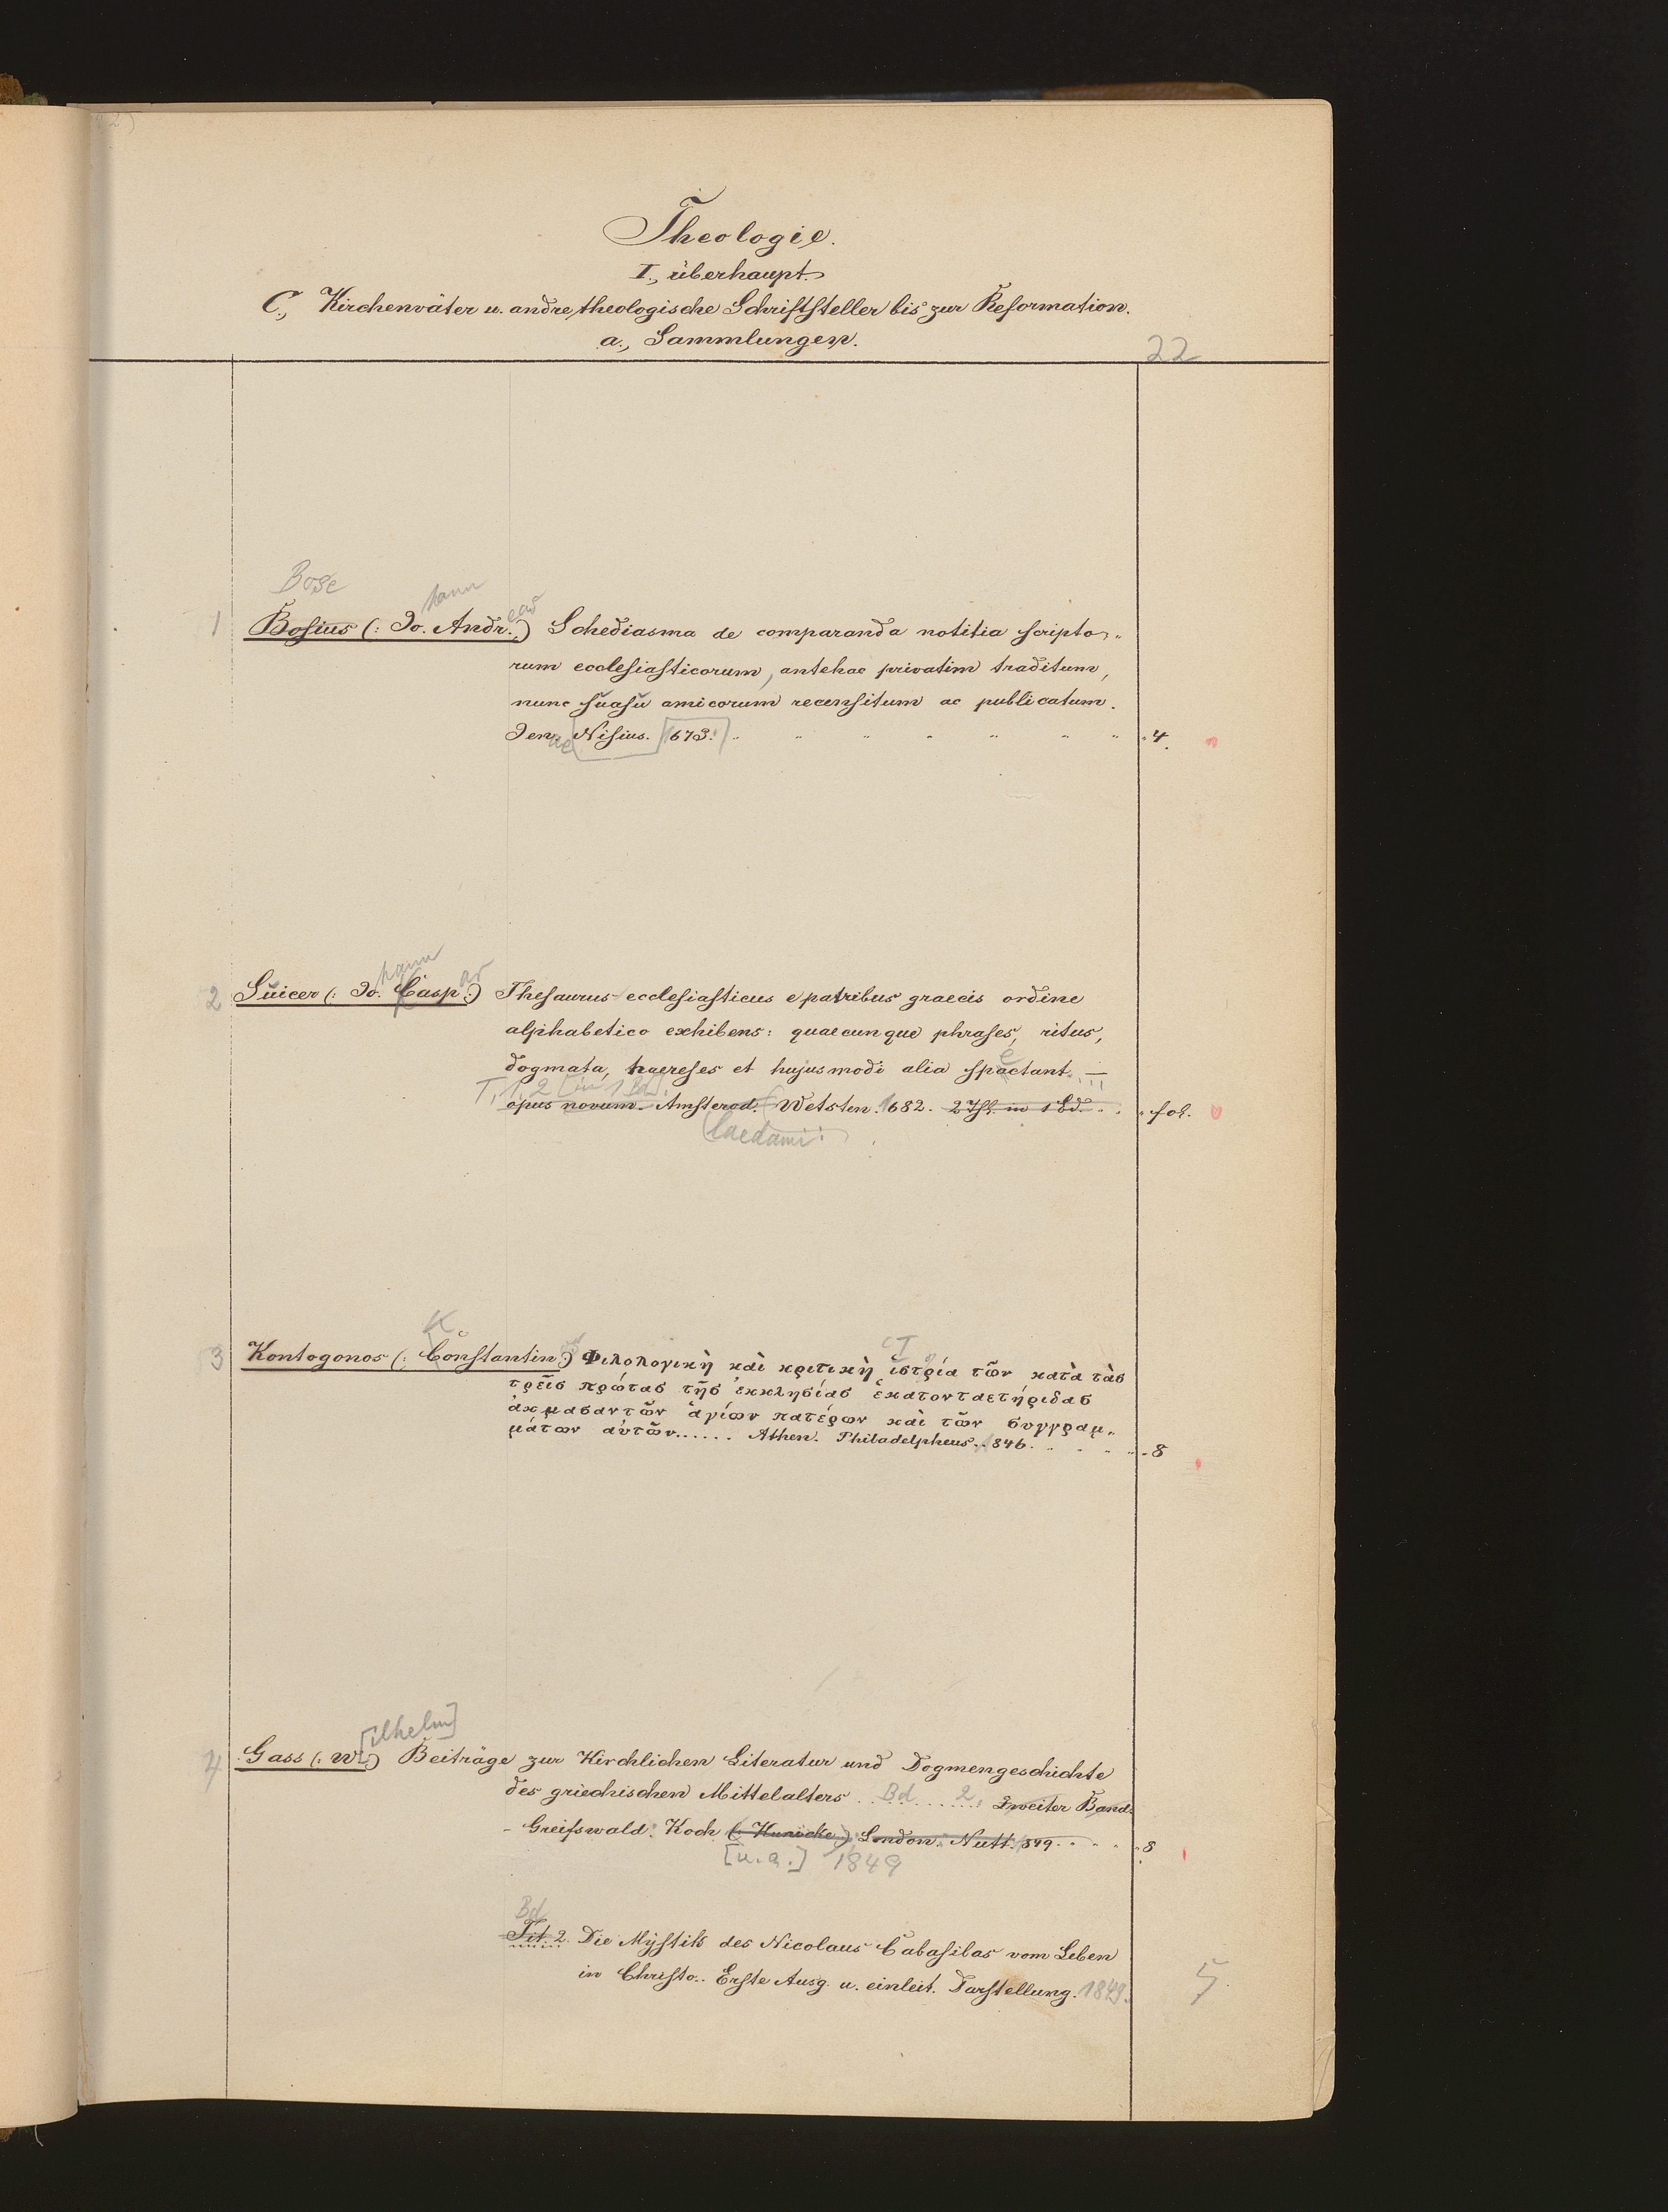 Theologie.
I., überhaupt.
C., Kirchenväter u. andre theologische Schriftsteller bis zur Reformation.
a., Sammlungen.
22
Bose
hann
eas
1 Bosius (: Jo. Andr.:) Schediasma de comparanda notitia scripto„
rum ecclesiasticorum, antehac privatim traditum,
nunc suasu amicorum recensitum ac publicatum.
Jen. ae [Nisius.] [1673.] 4.
hann
ar
2 Suicer (: Jo. Casp.:) Thesaurus ecclesiasticus e patribus graecis ordine
alphabetico exhibens: quaecunque phrases, ritus,
e
dogmata, haereses et hujusmodi alia spactant. —
T. 1. 2 [in 1 Bd].
opus novum. Amsterod. Wetsten. 1682. 2 Th. in 1 Bd. fol.
laedami:
K
3 Kontogonos (: Constantin:) Φιλολογικὴ καὶ κριτικὴ ἱστρία τῶν κατὰ τὰς
τρεῖς πρώτας τῆς ἐκκλησίας ἑκατονταετήριδας
ἀκμασαντῶν ἁγίων πατέρων καὶ τῶν συγγραμ„
μάτων ἀυτῶν...... Athen. Philadelpheus. 1846. 8
[ilhelm]
4 Gass (: W.:) Beiträge zur Kirchlichen Literatur und Dogmengeschichte
des griechischen Mittelalters Bd 2. Zweiter Band.
Greifswald. Koch (: Kunicke:) London. Nutt. 849. 8
[u.a.] 1849
Bd
Tit. 2. Die Mystik des Nicolaus Cabasilas vom Leben
in Christo.. Erste Ausg. u. einleit. Darstellung. 1849.
5